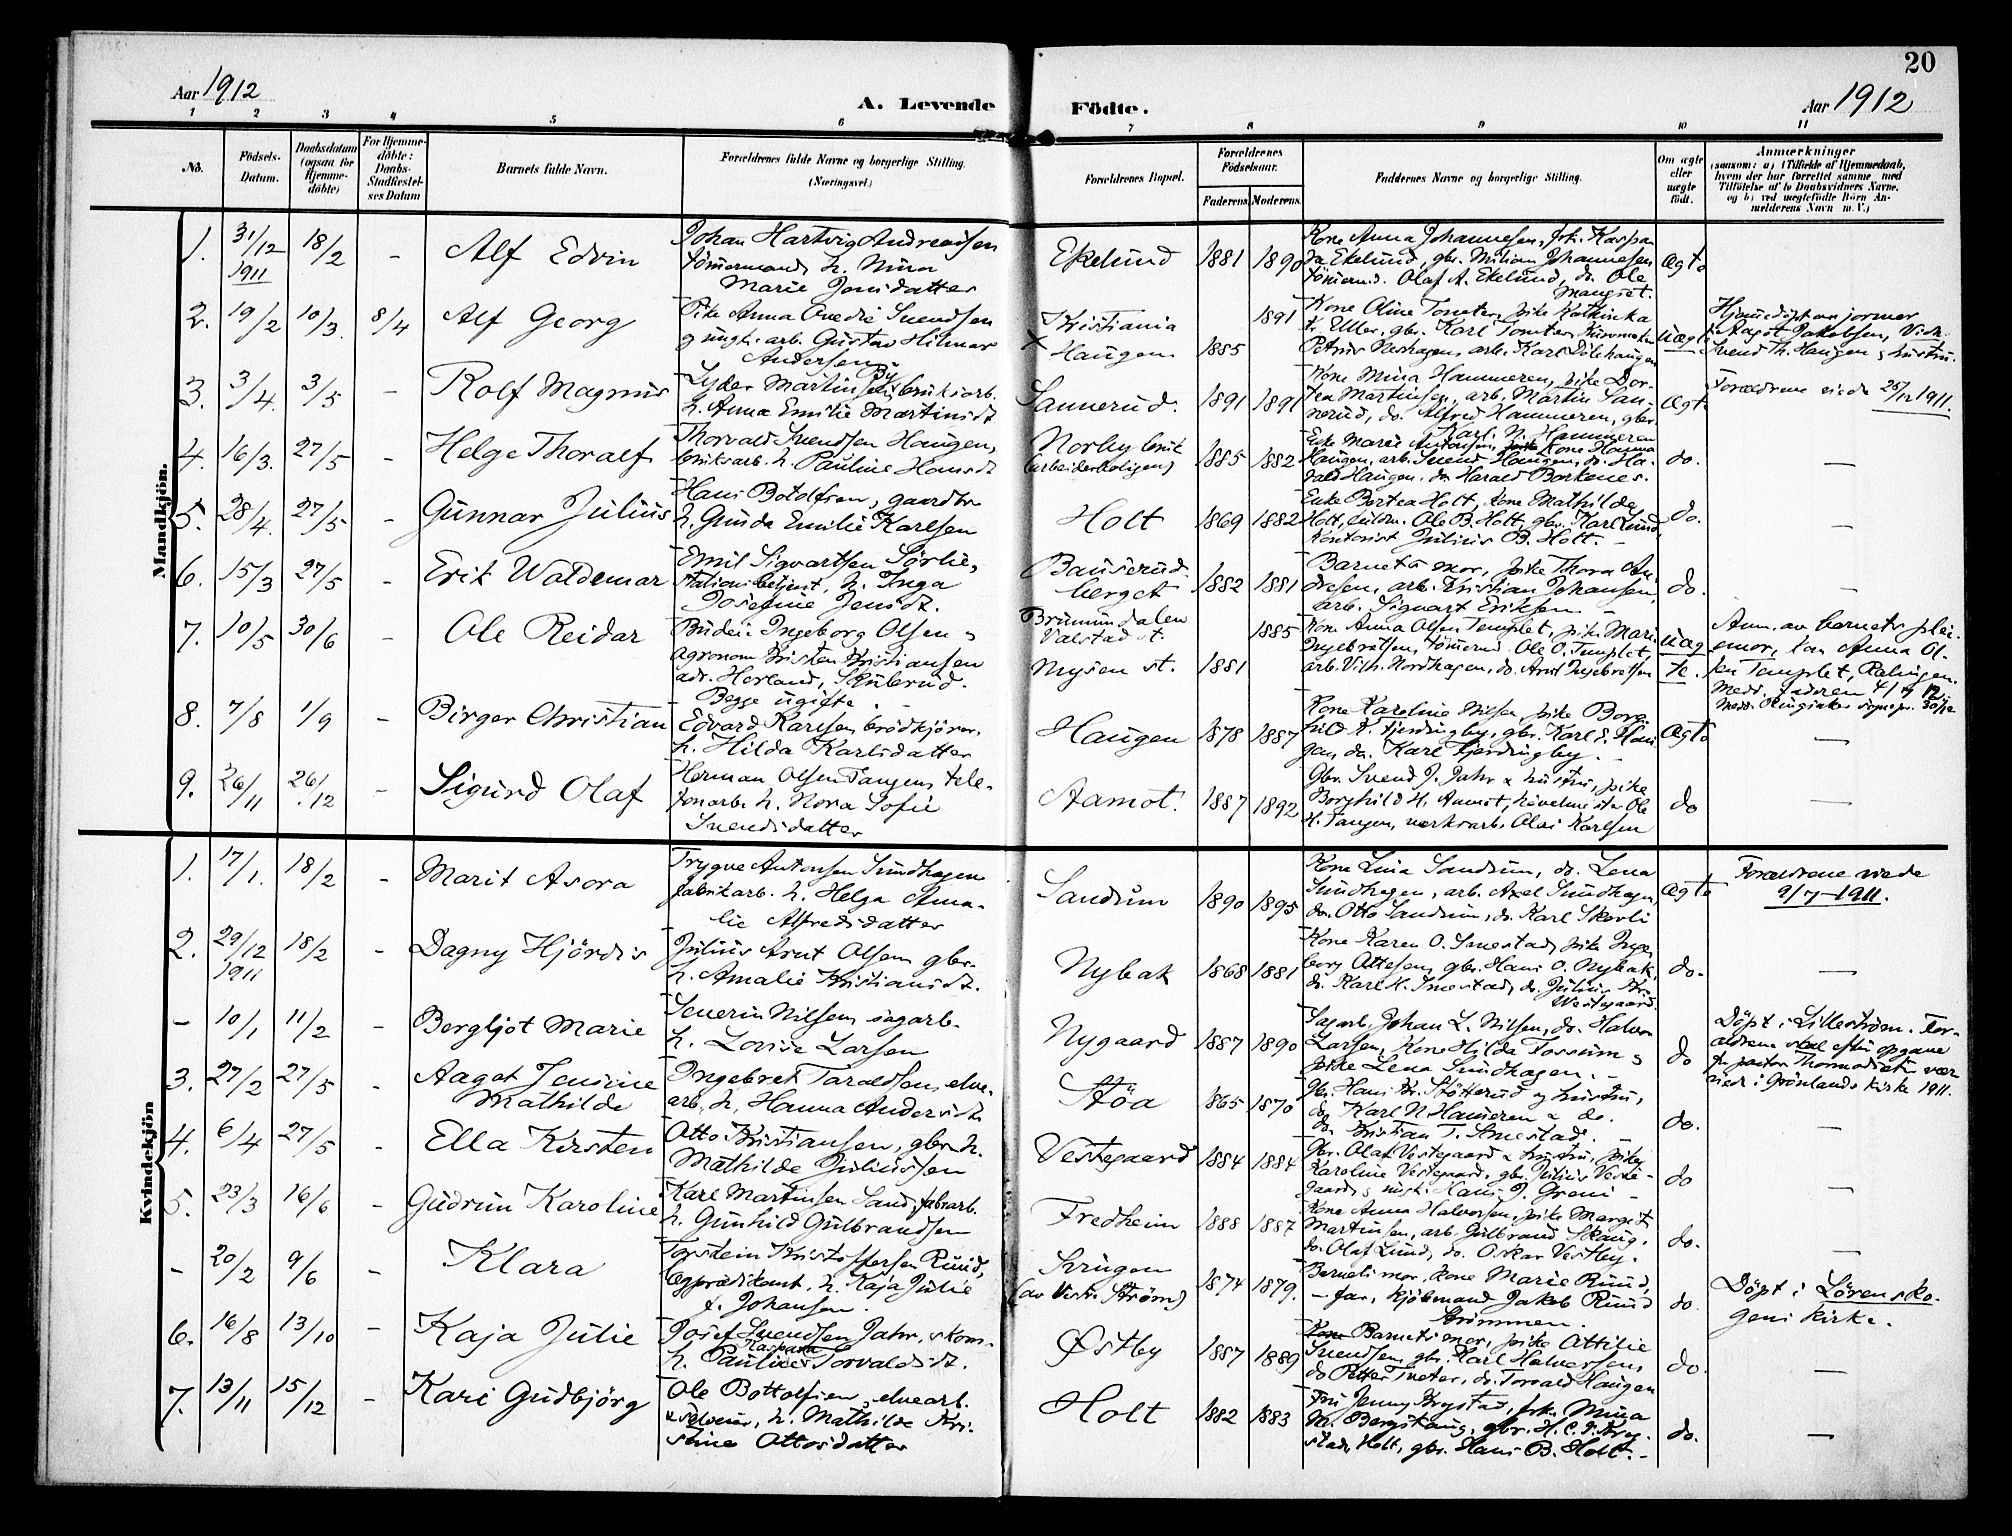 20
Aar 1912
A. Levende Födte.
Aar 1912
1 2 3 4 5 6 7 8 9 10 11
No.
Födsels-Datum.
Daabsdatum (ogsaa for Hjemme-döbte)
For Hjemme-döbte: Daabs-Stadfæstel-ses Datum
Barnets fulde Navn.
Forældrenes fulde Navne og borgerlige Stilling. (Næringsvei.)
Forældrenes Bopæl.
Forældrenes Födselsaar.
Faderens Moderens
Faddernes Navne og borgerlige Stilling.
Om ægte eller uægte födt.
Anmærkninger
(saasom: a) i Tilfælde af Hjemmedaab, hvem der har forrettet samme med Tilföielse af to Daabsvidners Navne, og b) ved uægtefödte Börn Anmelderens Navn m. V.)
Mandkjön.
1. 31/12 1911 18/2 - Alf Edvin
Johan Hartvig Andreassen
tömmermand, h. Nina
Marie Jonsdatter
Ekelund 1881 1890
Kone Anna Johannesen, pik. Kaspara Ekelund, gbr.
Johannesen
tömmerm. Olaf A. Ekelund, do. Ole
Mangset.
Ægte
2. 19/2 10/3 8/4 Alf Georg
Pike Anna Svendsen
og ungk. arb. Gustav Hilmar
Andersen
Kristiania
x Haugen 1885 1891
Kone Oline Tomter, pike Kathinka
Uller, gbr. Karl Tomter,
arb. Karl
Uægte
Hjemmedöpt av jormor
Aagot Jakobsen,
Svend Th. Haugen & hustru.
3. 3/4 3/5 - Rolf Magnus
Lyder Martinsen By bruksarb.
h. Anna Emilie Martinsdt
Sannerud. 1891 1891
Kone Mina Hammeren, pike Dor-
tea Martinsen, arb. Martin San-
nerud, do. Alfred Hammeren, gbr.
Karl. N. Hammeren
Ægte
Forældrene viede 25/12 1911.
4. 16/3. 27/5 - Helge Thoralf
Thorvald Svendsen Haugen,
bruksarb. h. Pauline Hansdt
Norby bruk
(arbeiderboligen) 1885 1882
Enke Marie Antonsen, Kone Hanna
Haugen, arb. Svend Haugen, do. Ha-
rald Haugen, do Harald Borkenes.
do. —
5. 28/4. 27/5 - Gunnar Julius
Hans Botolfsen, gaardbr
h. Gunda Emilie Karlsen
Holt 1869 1882
Enke Bertea Holt, Kone Mathilde
Holt, Ole B. Holt, gbr. Karl Lund,
Kontorist Julius B. Holt. -
do. —
6. 15/3 27/5 - Erik Waldemar
Emil Sigvartsen Sørlie,
stationsbetjent, h. Inga
Josefine Jensdt.
Bauserud-
berget 1882 1881
Barnets mor, pike Thora An-
dresen, arb. Kristian Johansen,
arb. Sigvart Eriksen -
do. —
7. 10/5 30/6 Ole Reidar
Budeie Ingeborg Olsen &
agronom Kristen Kristiansen
adr. Herland, Skulerud.
Begge ugifte.
Brumunddalen
Valstad st.
Mysen st. 1881 1885
Kone Anna Olsen Templet, pike Marie
Ingebretsen, tömmerm. Ole O. Templet,
arb. Vilh. Nordhagen, do. Arnt Ingebretsen
uæg-
te.
Anm. av barnets plei-
emor, Anna Ol-
sen Templet, Rælingen.
Medd. faderen 4/7 12
Medd. Ringsaker sognepr. 30/12
8. 7/8 1/9 - Birger Christian
Edvard Karlsen brödkjörer,
h. Hilda Karlsdatter
Haugen 1878 1887
Kone Karoline Nilsen pike Borg-
hild K. Fjerdingby, gbr. Karl E. Hau-
gen, do. Karl Fjerdingby. -
Ægte —
9. 26/11 26/12 - Sigurd Olaf
Herman Olsen Tangen, tele-
fonarb. h. Nora Sofie
Svendsdatter
Aamot. 1887 1892
Gbr. Svend J. Jahr & hustru, pike
Borghild H. Aamot, Ole
H. Tangen, værksarb. Olai Karlsen
do —
Kvindekjön
1. 17/1. 18/2 - Marit Asora
Trygve Antonsen Sundhagen
fabrikarb. h. Helga Ama-
lie Alfredsdatter
Sandum 1890 1895
Kone Lina Sandum, do. Lena
Sundhagen, arb. Axel Sundhagen,
do. Otto Sandum, do. Karl Skovli
Ægte
Forældrene viede
9/7 - 1911.
2. 29/12 1911 18/2 - Dagny Hjördis
Julius Arnt Olsen gbr.
h. Amalie Kristiansdt.
Nybak 1868 1881
Kone Karen O. Smestad, pike Inge-
borg Ottesen, gbr. Hans O. Nybak,
do. Karl H. Smestad, do. Julius Kr.
Vestgaard.
do. —
- 10/1 11/2 Bergljot Marie
Severin Nilsen sagarb.
h. Lovise Larsen
Nygaard 1887 1890
Sagarb. Johan L. Nilsen, do. Halvor
Larsen, Kone Hilda Fossum &
pike Lena Sundhagen. -
do
Döpt i Lilleström. For-
ældrene skal efter opgave
fr. pastor Thormodsæter vær
viede i Grönlands kirke 1911.
3. 27/2 27/5 - Aagot Jensine
Mathilde
Ingebret Taraldsen, elve-
arb. h. Hanna Andersdt.
Støa 1865 1870
Gbr. Hans Kr. Støtterud og hustru,
do. Karl N. Hammeren & do.
do. Kristian T. Smestad. -
do. —
4. 6/4 27/5 - Ella Kirsten
Otto Kristiansen, gbr. h.
Mathilde Juliussen
Vestgaard 1884 1884
Gbr. Olaf Vestgaard & hustru, pike
Karoline Vestgaard, gbr. Julius Vest-
gaard, ungk. Hans J. Greni -
do —
5. 23/3 16/6 - Gudrun Karoline
Karl Martinsen Sand, fabrarb.
h. Gunhild Gulbrandsen
Fredheim 1888 1887
Kone Anna Halvorsen, pike Margit
Martinsen, arb. Gulbrand Skaug,
do. Olaf Lund, do. Oskar Vestby.
do. —
- 20/2 9/6 - Klara
Torstein Kristoffersen Ruud,
lægprædikant, h. Kaja Julie
f. Johansen.
Krugen
(av Vestre Strøm) 1874 1879.
Barnets mor, Kone Marie Ruud,
— far, kjöbmand Jakob Ruud
Strömmen.
do.
Döpt i Lörensko-
gens kirke.
6. 16/8 13/10 - Kaja Julie
Josef Svendsen Jahr, skom.
h. Pauline Kaspara Torvaldsdt.
Østby 1887 1889
Barnets mor, pike Attilie
Svendsen, gbr. Karl Halvorsen,
do Petter Tveter, do. Torvald Haugen
do. —
7. 13/11 15/12 - Kari Gudbjörg
Ole Bottolfsen, elvearb.
& selveier, h. Mathilde Kri-
stine Ottosdatter
Holt 1882 1883
Fru Jenny Krystad, frk. Mina
M. Bergskaug, gbr. H. C. J. Kry-
stad, Holt, gbr. Hans B. Holt. -
do. —